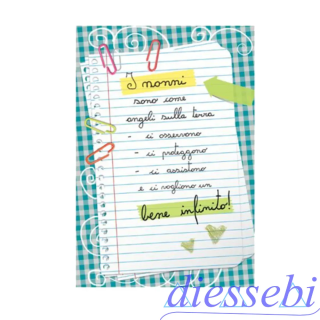 I nonni
sono come
angeli sulla terra
- ci osservano
- ci proteggono
- ci assistono
e ci vogliono un
bene infinito!
diessebi